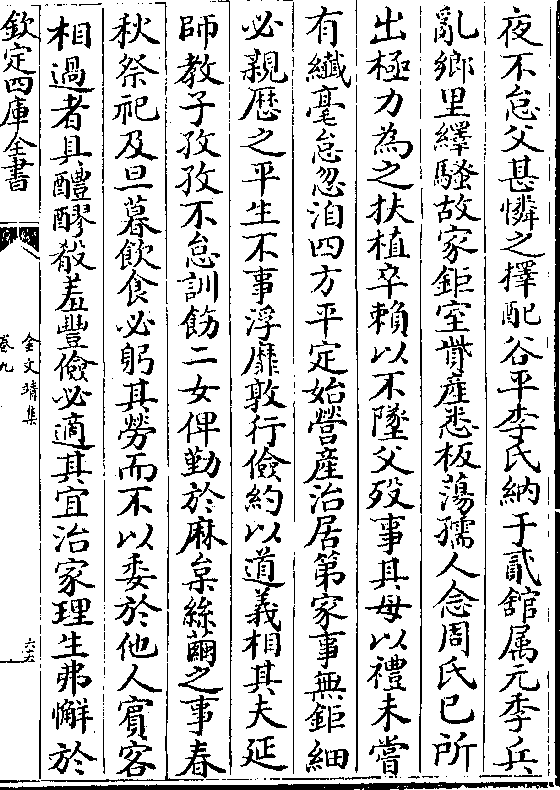 夜不怠父甚憐之擇配谷平李氏納于貳舘属元季兵
亂鄉里繹騷故家鉅室貲産悉板蕩孺人念周氏已所
出極力為之扶植卒賴以不墜父歿事其母以禮未嘗
有纖毫怠忽洎四方平定始營産治居第家事無鉅細
必親歴之平生不事浮靡敦行儉約以道義相其夫延
師教子孜孜不怠訓飭二女俾勤於麻枲絲繭之事春
秋祭祀及旦暮飲食必躬其勞而不以委於他人賓客
相過者具醴醪殽羞豐儉必適其宜治家理生弗懈於
欽定四庫全書
金文靖集
卷九
六五